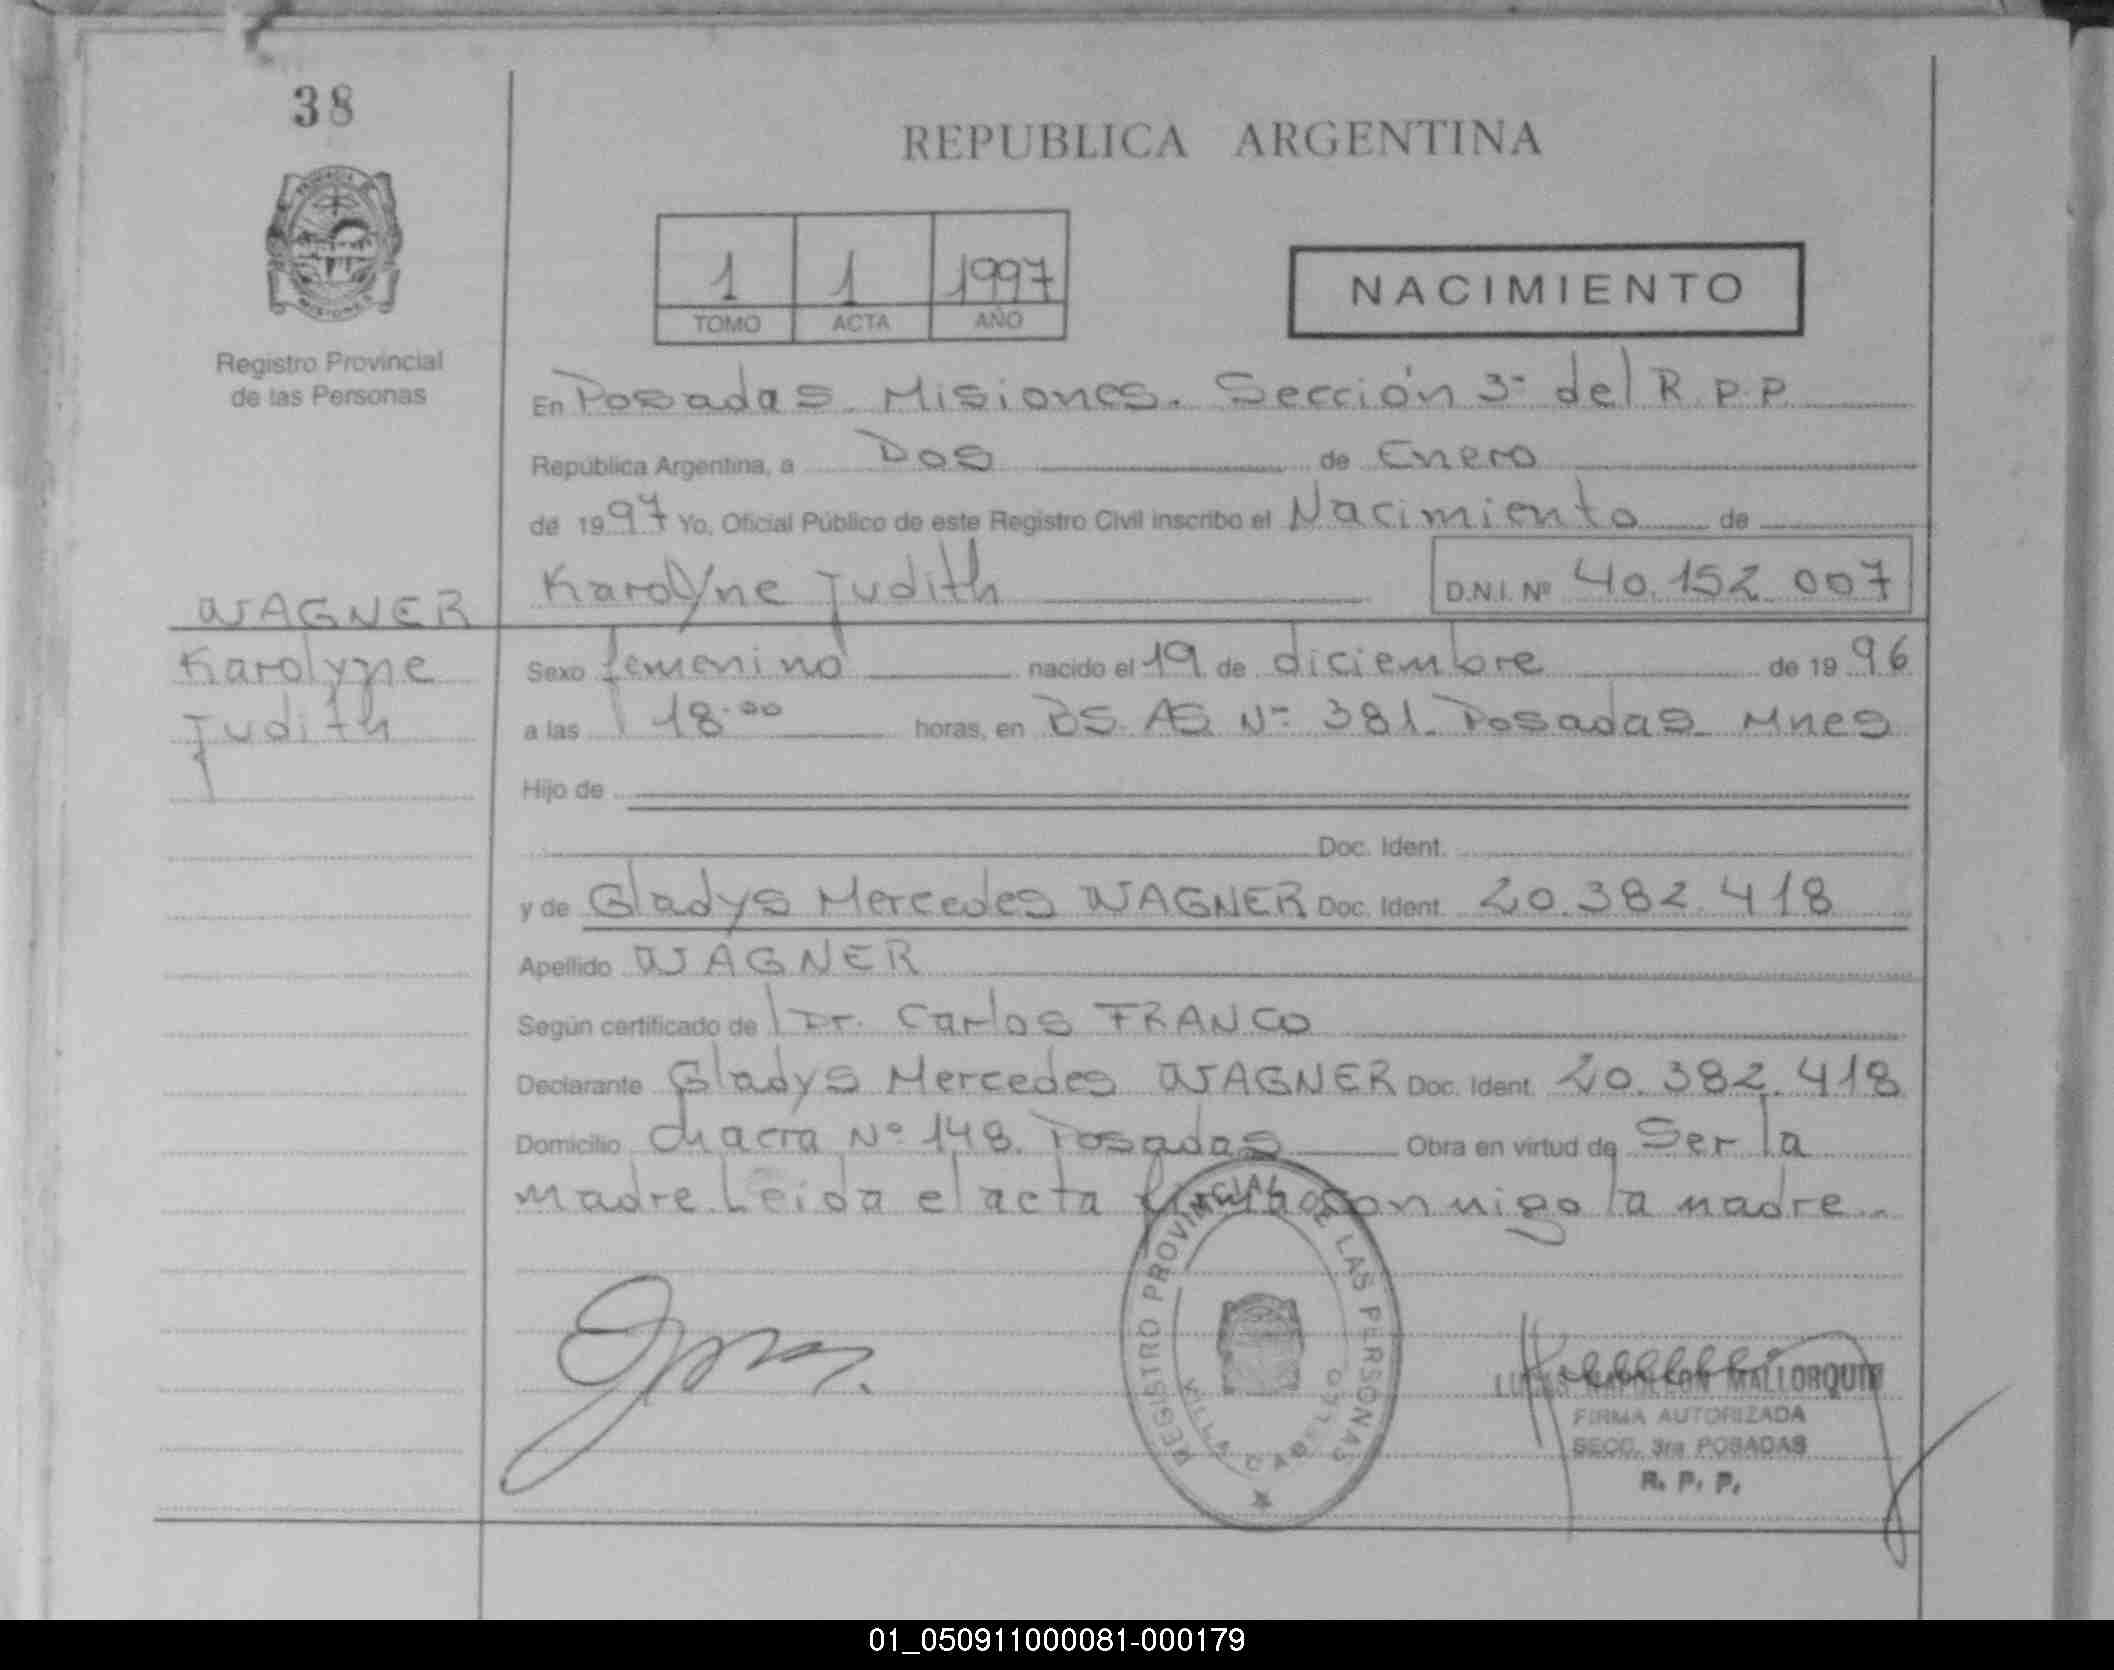 38
REPUBLICA ARGENTINA
1 1 1997
TOMO ACTA AÑO
NACIMIENTO
Registro Provincial
de las Personas
En Posadas. Misiones. Sección 3ª del R.P.P.
República Argentina, a Dos de Enero
de 1997 Yo, Oficial Público de este Registro Civil inscribo el Nacimiento de
Karolyne Judith D.N.I. Nº 40.152.007
WAGNER
Karolyne
Judith
Sexo femenino nacido el 19 de diciembre de 1996
a las 18.00 horas, en BS. AS. Nº 381. Posadas Mnes
Hijo de
Doc. Ident.
y de Gladys Mercedes WAGNER Doc. Ident. 20.382.418
Apellido WAGNER
Según certificado de Dr. Carlos FRANCO
Declarante Gladys Mercedes WAGNER Doc. Ident. 20.382.418
Domicilio Chacra Nº 148. Posadas Obra en virtud de Ser la
madre. Leida el acta conmigo la madre.
REGISTRO PROVINCIAL DE LAS PERSONAS
VILLA CABELLO
LUCAS NAPOLEON MALLORQUIN
FIRMA AUTORIZADA
SECC. 3ra POSADAS
R. P. P.
01_050911000081-000179